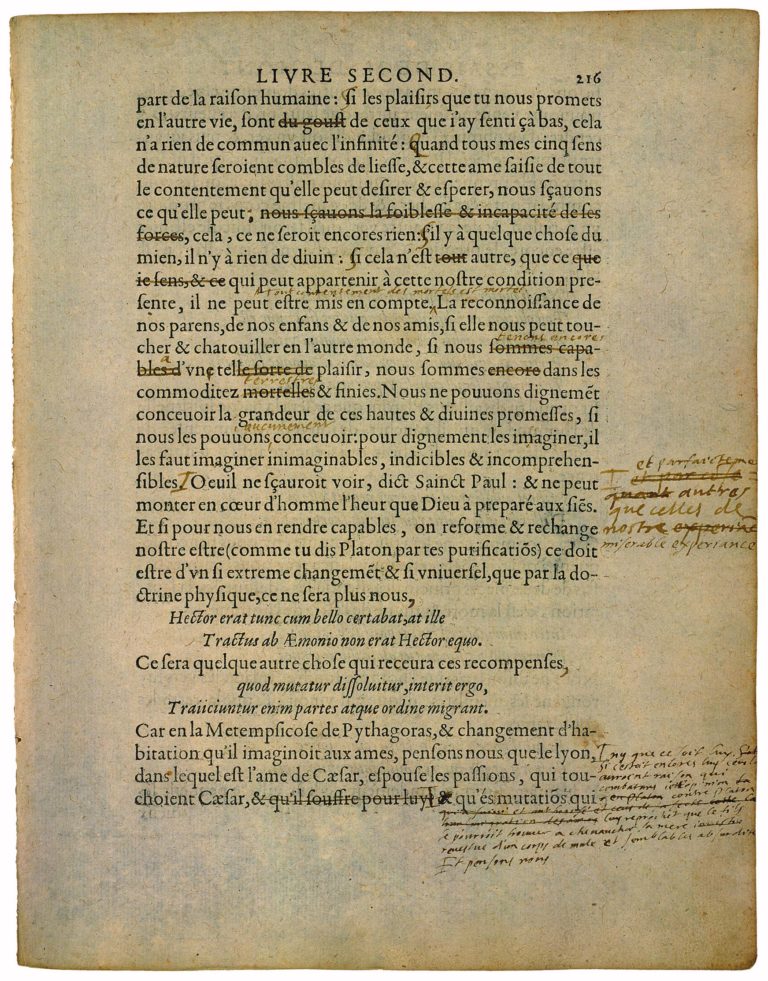 LIVRE SECOND. 216
part de la raiſon humaine : ſi les plaiſirs que tu nous promets
en l'autre vie, ſont du gouſt de ceux que i'ay ſenti çà bas, cela
n'a rien de commun auec l'infinité : quand tous mes cinq ſens
de nature ſeroient combles de lieſſe, & cette ame ſaiſie de tout
le contentement qu'elle peut deſirer & eſperer, nous ſçauons
ce qu'elle peut, nous ſçauons la foibleſſe & incapacité de ſes
forces, cela, ce ne ſeroit encores rien: s'il y à quelque choſe du
mien, il n'y à rien de diuin : ſi cela n'eſt tout autre, que ce que
ie ſens, & ce qui peut appartenir à cette noſtre condition pre-
tout contentement des mortels est mortel
ſente, il ne peut eſtre mis en compte. La reconnoiſſance de
nos parens, de nos enfans & de nos amis, ſi elle nous peut tou-
tenons encores
cher & chatouiller en l'autre monde, ſi nous ſommes capa-
a
bles d'vne telle ſorte de plaiſir, nous ſommes encore dans les
terrestres
commoditez mortelles & finies. Nous ne pouuons dignemēt
conceuoir la grandeur de ces hautes & diuines promeſſes, ſi
aucunement
nous les pouuons conceuoir: pour dignement les imaginer, il
les faut imaginer inimaginables, indicibles & incomprehen-
et parfaictement
ſibles. L'Oeuil ne ſçauroit voir, dict Sainct Paul : & ne peut
autres
monter en cœur d'homme l'heur que Dieu à preparé aux ſiēs.
que celles de
Et ſi pour nous en rendre capables, on reforme & rechange
nostre
noſtre eſtre (comme tu dis Platon par tes purificatiōs) ce doit
miserable experiance
eſtre d'vn ſi extreme changemēt & ſi vniuerſel, que par la do-
ctrine phyſique, ce ne ſera plus nous,
Hector erat tunc cum bello certabat, at ille
Tractus ab Æmonio non erat Hector equo.
Ce ſera quelque autre choſe qui receura ces recompenſes,
quod mutatur diſſoluitur, interit ergo,
Traiiciuntur enim partes atque ordine migrant.
Car en la Metempſicoſe de Pythagoras, & changement d'ha-
bitation qu'il imaginoit aux ames, penſons nous que le lyon,
ny que ce soit luy.
dans lequel eſt l'ame de Cæſar, eſpouſe les paſſions, qui tou-
Si c'estoit encores luy
auroient raison qui
choient Cæſar, & qu'il ſouffre pour luy & qu'és mutatiōs qui
combatans
Platon
luy reprochoit que le fils
se pourroit trouuer a cheuaucher sa mere
reuestue d'un corps de mule et semblables absurdites
Et pensons nous